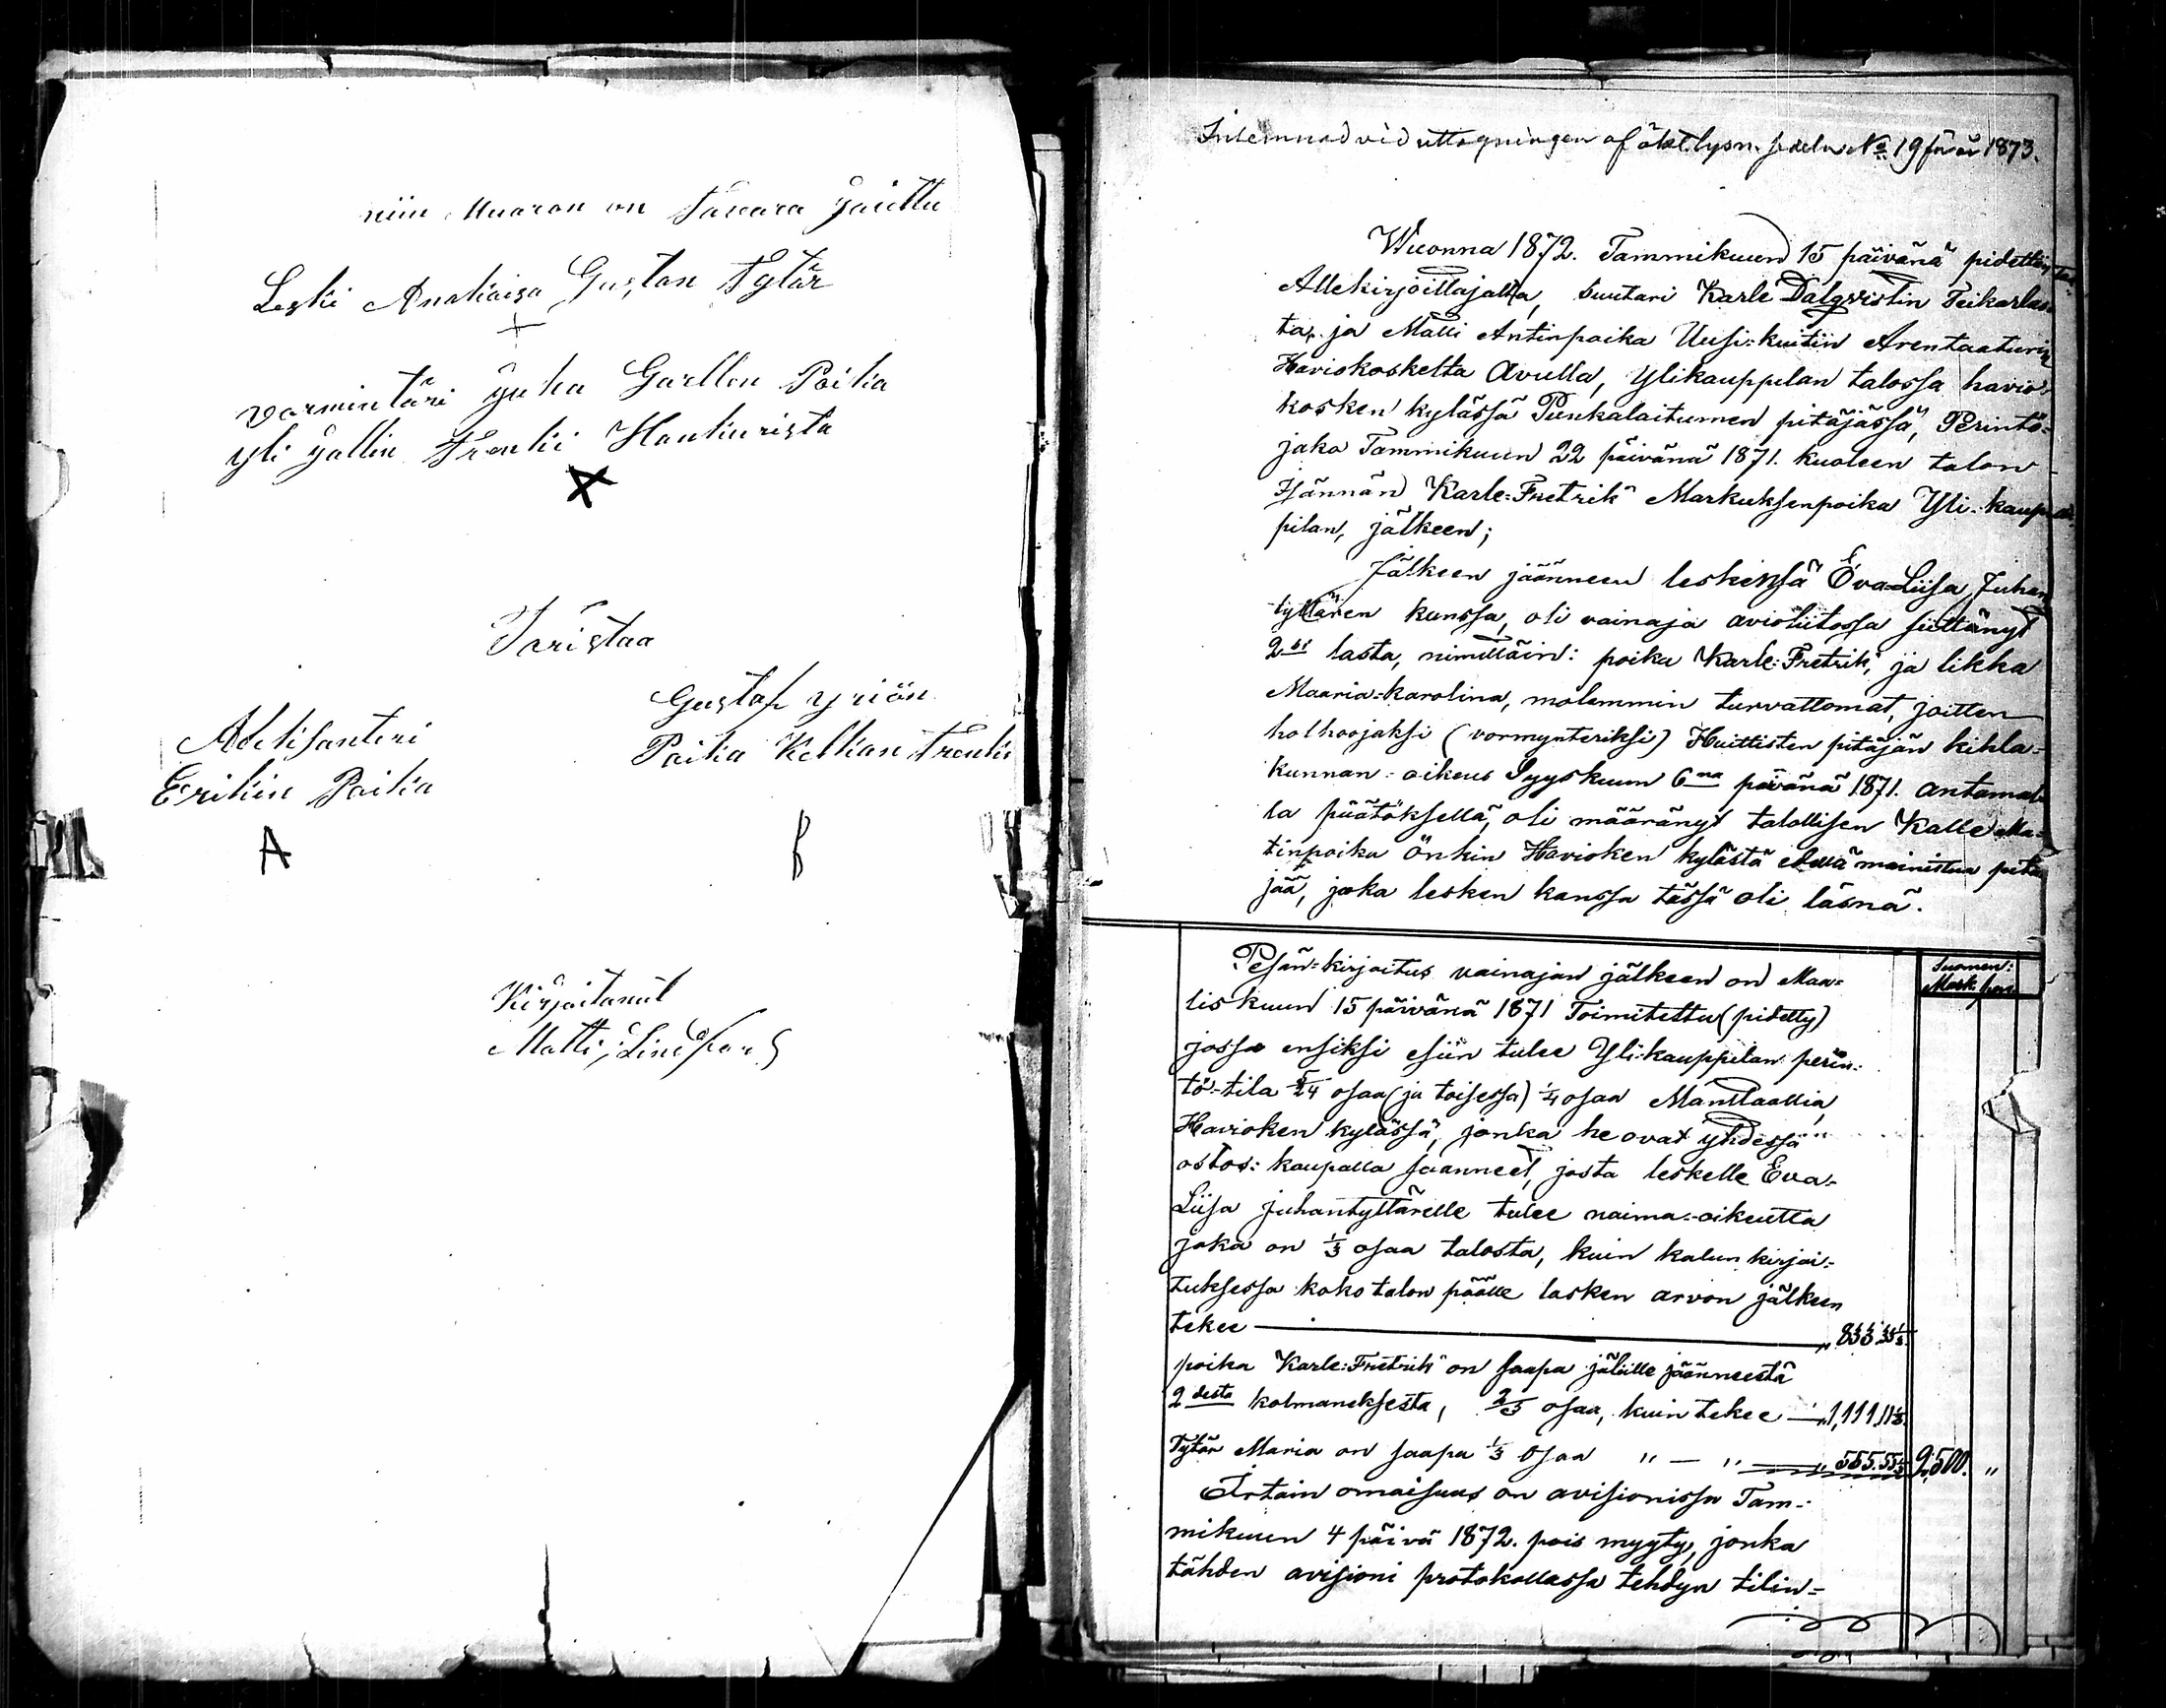 niin Muoron on Tavara Jaittu
Leski Anakaisa Gustan Tytär
vormintäri Juha Garllen Poika
yli Jallin Trenki Haukurista
Taristaa
Gustaf Yriön
Paika Kelkan Trenki
Aleksanteri
Erikin Poika
A
Kirjoitanut
Matti Lindfors
Inlemnad vid uttagningen af äkt. lysn. sedeln No 19 för år 1873.
Wuonna 1872. Tammikuun 15 päivänä pidettiin
Allekirjoittajalta, Suutari Karle Dalqvistin Teikarlas
ta, ja Matti Antinpoika Uusi-kuitin Arentaaturin
Haviokoskelta Avulla, Ylikauppilan talossa havio-
kosken kylässä Punkalaitumen pitäjässä, Perintö-
jako Tammikuun 22 päivänä 1871. kuoleen talon
Isännän Karle-Fretrik Markuksenpoika Yli-kaup
pilan, jälkeen;
Jälkeen jäänneen leskensä Eva-Liisa Juhan
tyttären kanssa, oli vainaja avioliitossa siittänyt
2si lasta, nimittäin: poika Karle-Fretrik, ja likka
Maaria-karolina, molemmin turvattomat, joitten
holhoojaksi (vormynteriksi) Huittisten pitäjän kihla-
kunnan-oikeus Syyskuun 6na päivänä 1871. antamal
la päätöksellä, oli määränyt talollisen Kalle Ma-
tinpoika Önkin Havioken kylästä edellä mainistua pitä
jää, joka lesken kanssa tässä oli läsnä.
Suomen:
Mark. pen
Pesän-kirjoitus vainajan jälkeen on Maa-
liskuun 15 päivänä 1871 Toimitettu (pidetty)
jossa ensiksi esiin tulee Yli-kauppilan perin-
tö-tila 5/24 osaa (ja toisessa) 1/4 osaa Manttaallia
Havioken kylässä, jonka he ovat yhdessä
ostos-kaupalla saanneet, josta leskelle Eva-
Liisa Juhantyttärelle tulee naima-oikeutta
joka on 1/3 osaa talosta, kuin kalun kirjoi-
tuksessa koko talon päälle lasken arvon jälkeen
tekee — „ 833 33 1/3.
poika Karle-Fretrik on saapa jälille jäänneestä
2desta kolmaneksesta, 2/3 osaa, kuin tekee — „ 1,111,11 1/3.
Tytär Maria on saapa 1/3 osaa „ — „ — „ 555.55 1/3 2,500. „
Irtain omaisuus on avisionissa Tam-
mikuun 4 päivä 1872. pois myyty, jonka
tähden avisioni protokollassa tehdyn tilin-